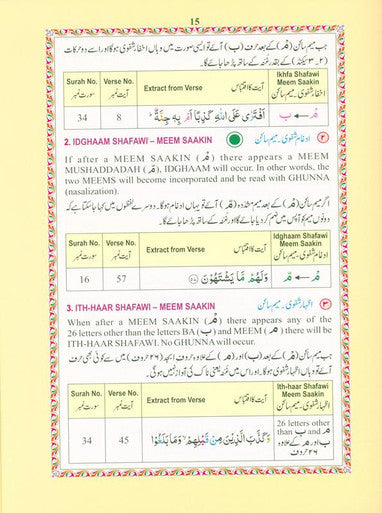 15
جب میم ساکن (مْ) کے بعد حرف (ب) آئے تو ایسی صورت میں وہاں اخفا شفوی ہوگا اور اسے دو حرکات
(۲-۳ سیکنڈ) کے بقدر غنہ کے ساتھ پڑھا جائے گا۔
Surah No. سورت نمبر
Verse No. آیت نمبر
Extract from Verse آیت کا اقتباس
Ikhfa Shafawi Meem Saakin
اخفار شفوی۔ میم ساکن
34
8
اَفْتَرٰى عَلَى اللّٰهِ كَذِبًا اَمْ بِهٖ جِنَّةٌ ؕ
مْ ← ب
2. IDGHAAM SHAFAWI – MEEM SAAKIN
ادغام شفوی۔ میم ساکن (۲)
If after a MEEM SAAKIN (مْ) there appears a MEEM
MUSHADDADAH (مّ), IDGHAAM will occur. In other words, the
two MEEMS will become incorporated and be read with GHUNNA
(nasalization).
اگر میم ساکن (مْ) کے بعد میم مشددہ (مّ) آئے تو یہاں ادغام ہوگا۔ دوسرے لفظوں میں یوں کہا جا سکتا ہے کہ
دونوں میم کو آپس میں ضم کر دیا جائے گا اور غنہ کے ساتھ پڑھا جائے گا۔
Surah No. سورت نمبر
Verse No. آیت نمبر
Extract from Verse آیت کا اقتباس
Idghaam Shafawi Meem Saakin
ادغام شفوی۔ میم ساکن
16
57
وَلَهُمْ مَّا يَشْتَهُوْنَ
مْ ← مّ
3. ITH-HAAR SHAFAWI – MEEM SAAKIN
اظہار شفوی۔ میم ساکن (۳)
When after a MEEM SAAKIN (مْ) there appears any of the
26 letters other than the letters BA (ب) and MEEM (م) there will be
ITH-HAAR SHAFAWI. No GHUNNA will occur.
جب میم ساکن (مْ) کے بعد (ب) اور (م) کے علاوہ حروف ابجد (۲۶ حروف) میں سے کوئی بھی حرف
آئے تو وہاں اظہار شفوی ہوگا۔ اور اس میں غنہ یعنی ناک کی آواز نہیں ہوگی۔
Surah No. سورت نمبر
Verse No. آیت نمبر
Extract from Verse آیت کا اقتباس
Ith-haar Shafawi Meem Saakin
اظہار شفوی۔ میم ساکن
34
45
وَكَذَّبَ الَّذِيْنَ مِنْ قَبْلِهِمْ ۙ وَمَا بَلَغُوْا
26 letters other
than م and ب
ب اور م کے علاوہ
۲۶ حروف